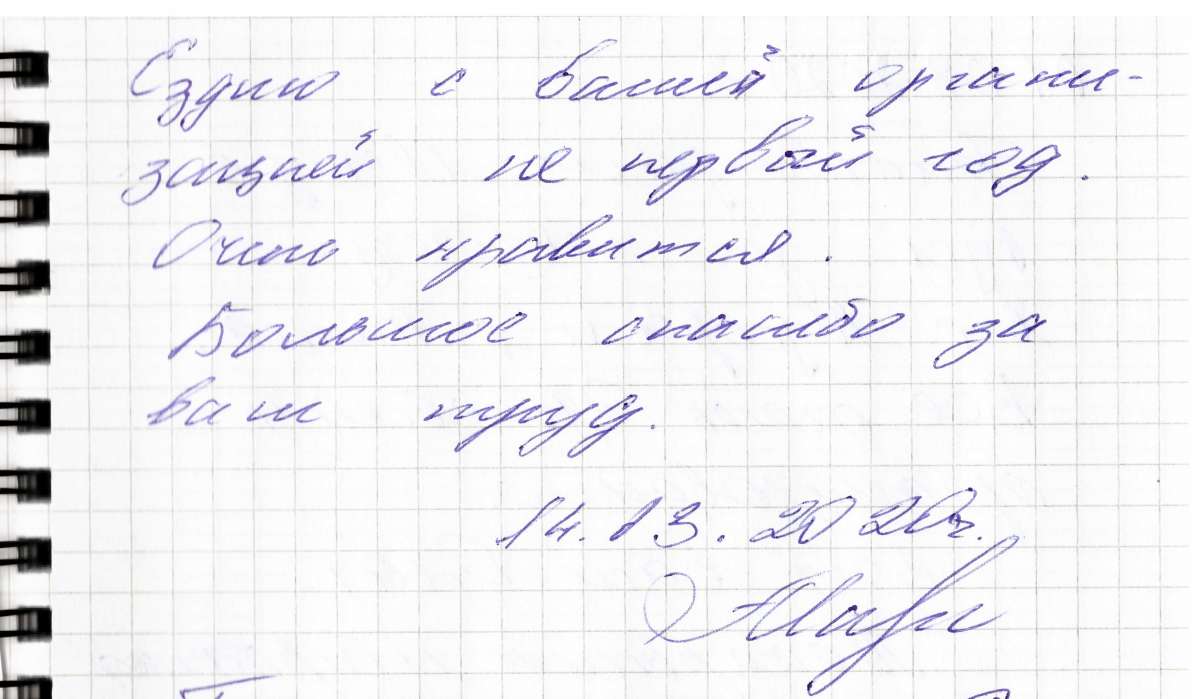 Езжу с вашей органи-
зацией не первый год.
Очень нравится.
Большое спасибо за
ваш труд.
14.03.2020г.